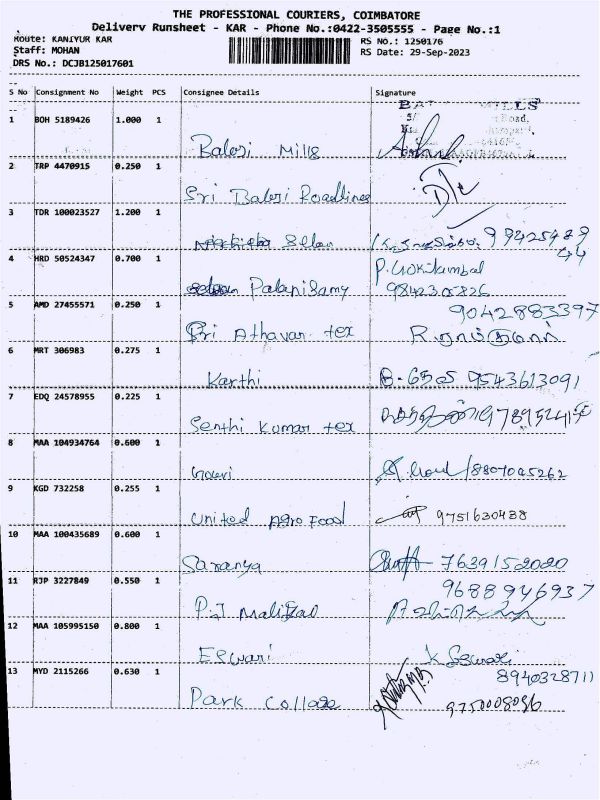 THE PROFESSIONAL COURIERS, COIMBATORE
Delivery Runsheet - KAR - Phone No.:0422-3505555 - Page No.:1
Route: KANIYUR KAR
RS No.: 1250176
Staff: MOHAN
RS Date: 29-Sep-2023
DRS No.: DCJB125017601
S No Consignment No Weight PCS Consignee Details Signature
MILLS
Road,
1 BOH 5189426 1.000 1
Balaji Mills
2 TRP 4470915 0.250 1
Sri Balaji Roadlines
3 TDR 100023527 1.200 1
99425489
44
4 HRD 50524347 0.700 1
P. Gokilambal
Palanisamy
9842305826
5 AMD 27455571 0.250 1
9042883397
Sri Athavan tex
R. ராம்குமார்
6 MRT 306983 0.275 1
Karthi
9543613091
7 EDQ 24578955 0.225 1
Senthi Kumar tex
8 MAA 104934764 0.600 1
Gowri
8807045262
9 KGD 732258 0.255 1
United Agro Food
9751630438
10 MAA 100435689 0.600 1
Saranya
7639152020
11 RJP 3227849 0.550 1
9688946937
P.J
12 MAA 105995150 0.800 1
Eswari
K Eswari
13 MYD 2115266 0.630 1
8940328711
Park College
9750008096